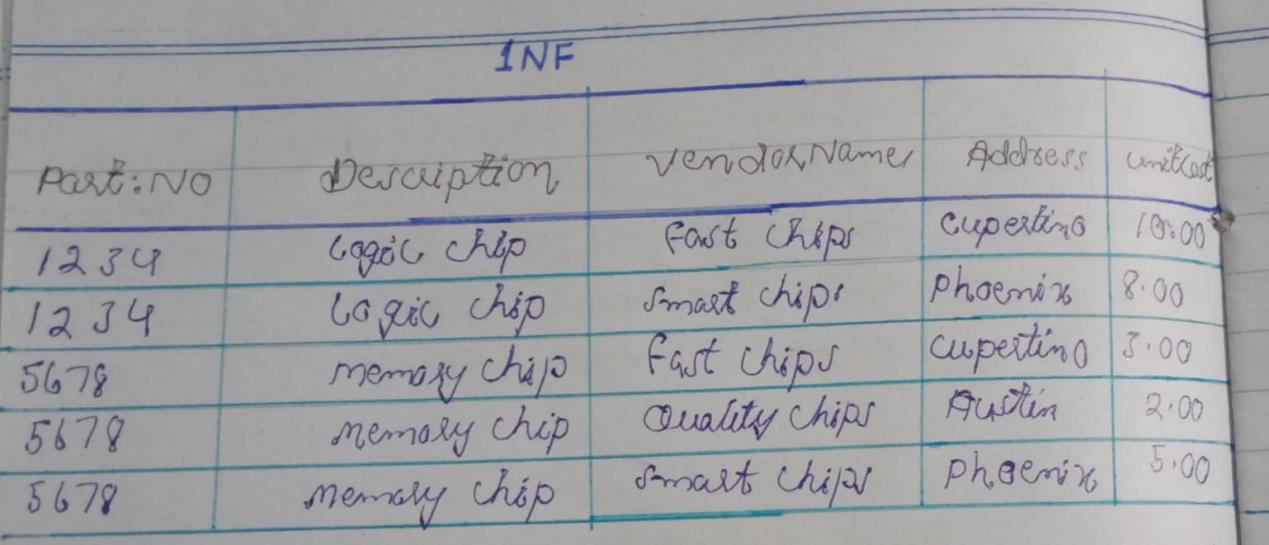 1NF
Part:No Description Vendor Name Address unitCost
1234 Logic chip Fast chips Cupertino 10.00
1234 Logic chip Smart chips Phoenix 8.00
5678 Memory chip Fast chips Cupertino 3.00
5678 Memory chip Quality chips Austin 2.00
5678 Memory chip Smart chips Phoenix 5.00